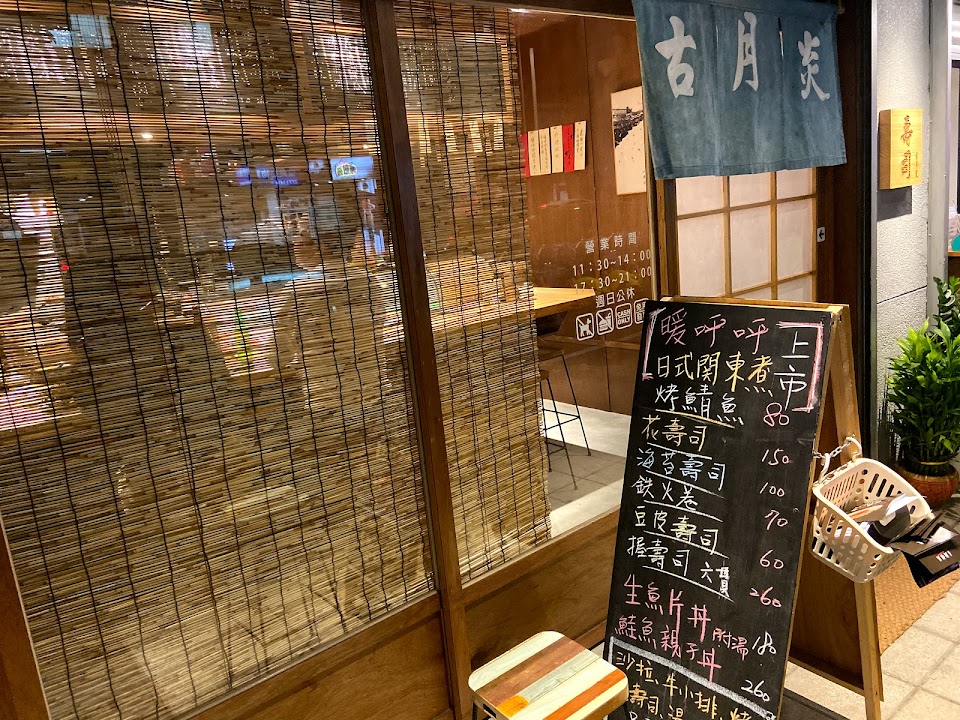 古月炎
營業時間
11：30~14：00
17：30~21：00
週日公休
CASH ONLY
暖呼呼
日式関東煮
上市
烤鯖魚 80
花壽司 150
海苔壽司 100
鉄火卷 70
豆皮壽司 60
握壽司 六貫 260
生魚片丼 附湯 180
鮭魚親子丼 260
沙拉、牛小排、烤
壽司、湯